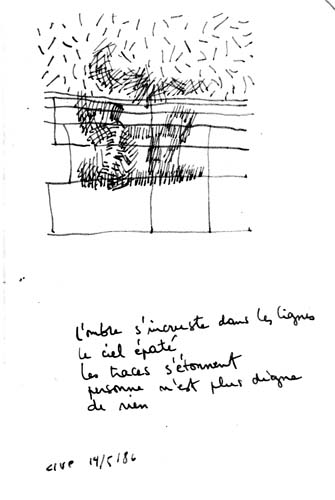 l'ombre s'incruste dans les lignes
le ciel épaté
les traces s'étonnent
personne n'est plus digne
de rien
14/5/86